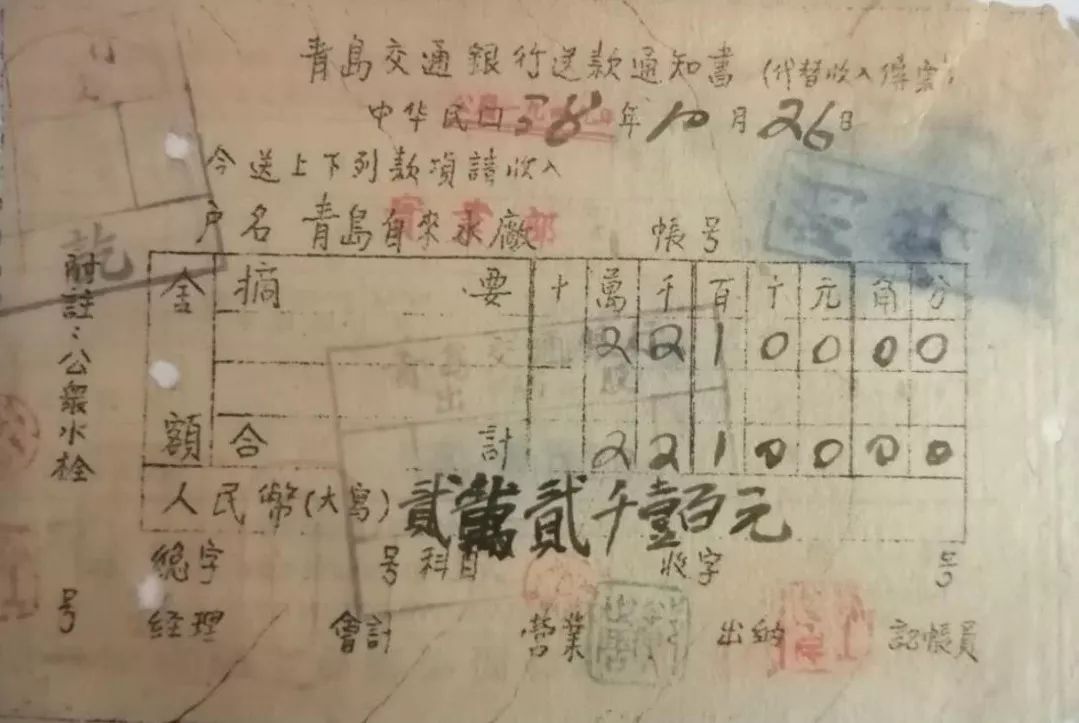 青島交通銀行送款通知書（代替收入傳票）
中华民囗38年10月26日
今送上下列款項請收入
户名 青島自來水廠 帳号
金額 摘要 十 萬 千 百 十 元 角 分
2 2 1 0 0 0 0
合計 2 2 1 0 0 0 0
人民幣（大寫）貳萬貳千壹百元
總字 号 科目 收字 号
经理 會計 营業 出纳 記帳員
附註：公衆水栓
号
訖